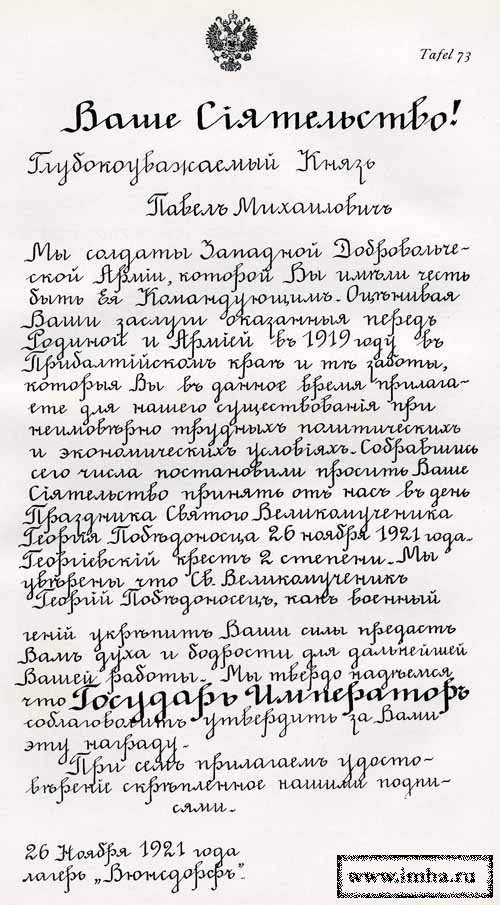 Tafel 73
Ваше Сіятельство!
Глубокоуважаемый Князь
Павелъ Михаиловичъ
Мы солдаты Западной Добровольче-
ской Арміи, которой Вы имѣли честь
быть Ея Командующимъ. Оцѣнивая
Ваши заслуги оказанныя передъ
Родиной и Арміей въ 1919 году въ
Прибалтійскомъ краѣ и тѣ заботы,
которыя Вы въ данное время прилага-
ете для нашего существованія при
неимовѣрно трудныхъ политическихъ
и экономическихъ условіяхъ. Собравшись
сего числа постановили просить Ваше
Сіятельство принять отъ насъ въ день
Праздника Святого Великомученика
Георгія Побѣдоносца 26 ноября 1921 года.
Георгіевскій крестъ 2 степени. Мы
увѣрены что Св. Великомученикъ
Георгій Побѣдоносецъ, какъ военный
геній укрѣпитъ Ваши силы предастъ
Вамъ духа и бодрости для дальнейшей
Вашей работы. Мы твердо надѣемся
что Государь Императоръ
соблаговолитъ утвердить за Вами
эту награду.
При семъ прилагаемъ удосто-
вѣреніе скрѣпленное нашими подпи-
сями.
26 Ноября 1921 года
лагерь „Вюнсдорфъ".
www.imha.ru